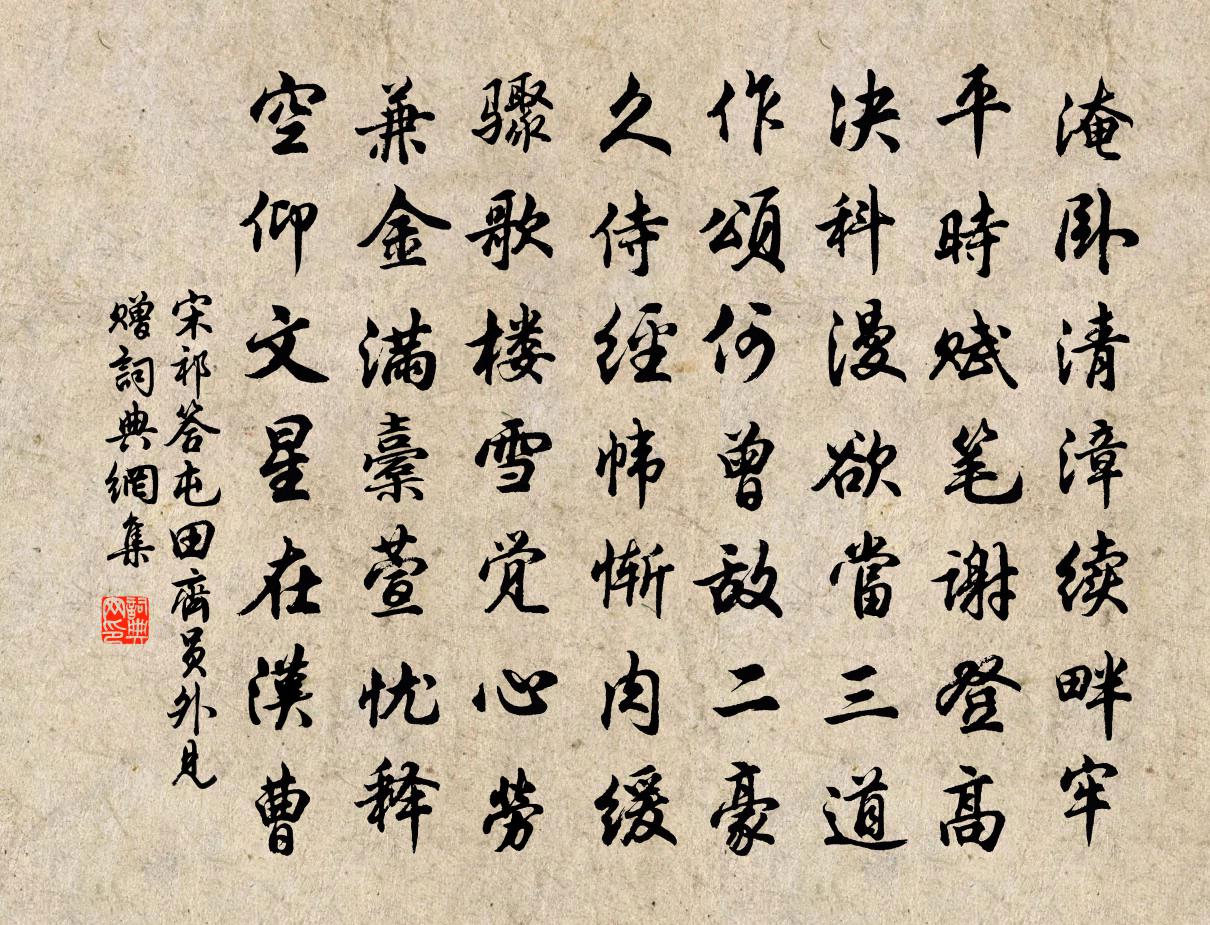 淹卧清漳续畔牢
平時赋笔谢登高
决科漫欲當三道
作頌何曾敌二豪
久侍經帏惭肉缓
骤歌楼雪觉心劳
兼金满橐萱忧释
空仰文星在漢曹
宋祁答屯田齊员外見
赠詞典網集
詞典
网印